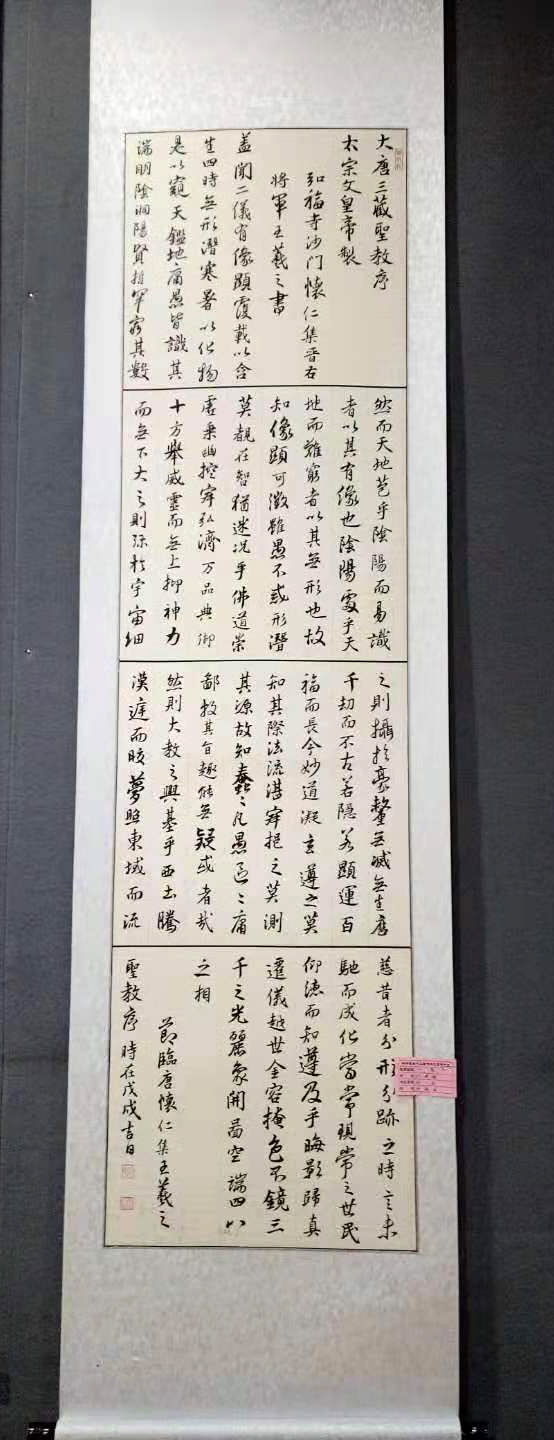 大唐三藏聖教序
太宗文皇帝製
弘福寺沙门懷仁集晋右
将軍王羲之書
盖聞二儀有像顯覆載以含
生四時無形潛寒暑以化物
是以窺天鑑地庸愚皆識其
端明陰洞陽賢指罕窮其數
然而天地苞乎陰陽而易識
者以其有像也陰陽處乎天
地而難窮者以其無形也故
知像顯可徵雖愚不惑形潛
莫覩在智猶迷况乎佛道崇
虛乗幽控寂弘濟万品典御
十方舉威靈而無上抑神力
而無下大之則弥於宇宙細
之則攝於豪釐無滅無生歷
千劫而不古若隱若顯運百
福而長今妙道凝玄遵之莫
知其際法流湛寂挹之莫測
其源故知蠢〻凡愚區〻庸
鄙投其旨趣能無疑或者哉
然則大教之興基乎西土騰
漢庭而皎夢照東域而流
慈昔者分形分跡之時言未
馳而成化當常現常之世民
仰德而知遵及乎晦影歸真
遷儀越世金容掩色不鏡三
千之光麗象開啚空端四八
之相
節臨唐懷仁集王羲之
聖教序 時在戊戌吉日